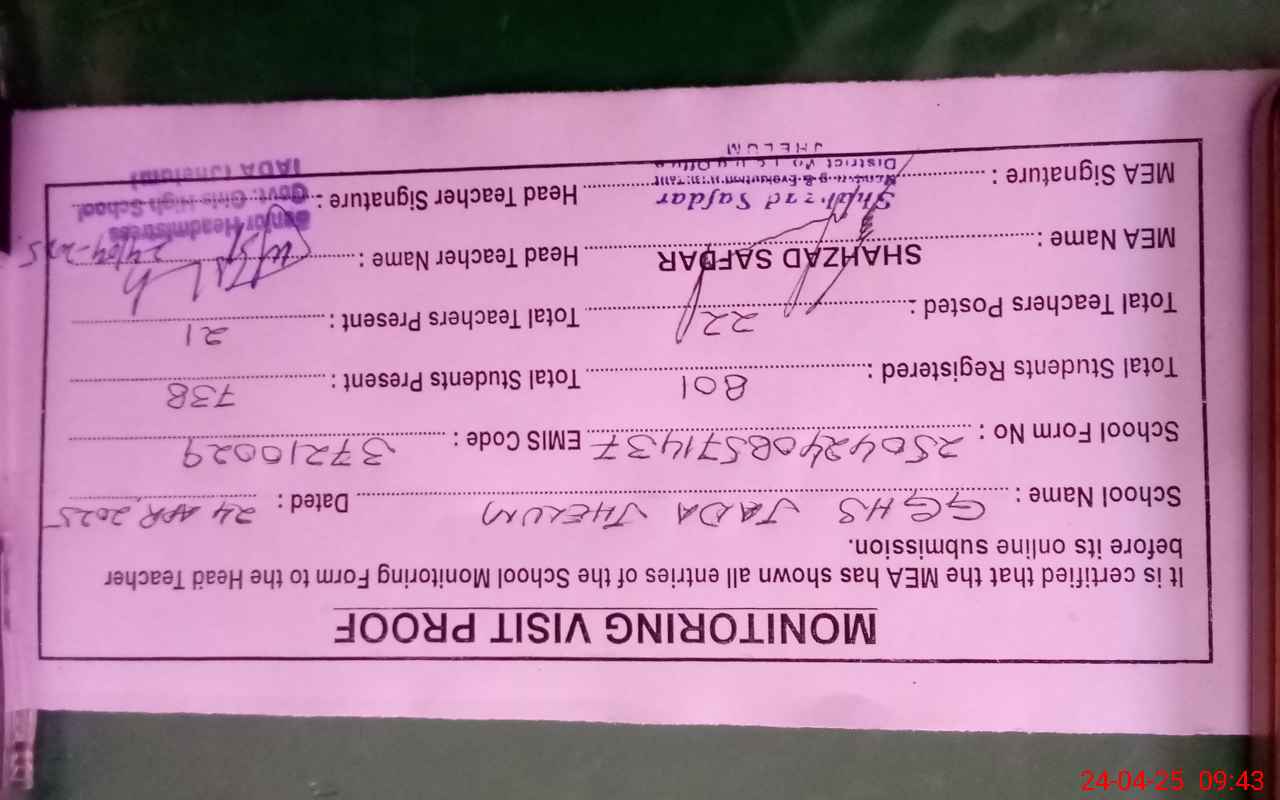 MONITORING VISIT PROOF
It is certified that the MEA has shown all entries of the School Monitoring Form to the Head Teacher
before its online submission.
School Name : GGHS JADA JHELUM Dated : 24 APR 2025
School Form No : 250424085711437 EMIS Code : 37210029
Total Students Registered : 801 Total Students Present : 738
Total Teachers Posted : 22 Total Teachers Present : 21
MEA Name : SHAHZAD SAFDAR Head Teacher Name :
24/04-2025
Senior Headmistress
MEA Signature : Shahzad Safdar Head Teacher Signature : Govt: Girls High School
District
JADA (Jhelum)
JHELUM
24-04-25 09:43